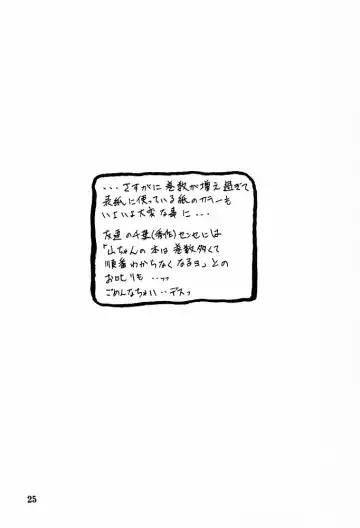 ...さすがに巻数が増え過ぎて
表紙に使っている紙のカラーも
いよいよ大変な事に...
友達の千葉(秀作)センセには
「山ちゃんの本は巻数多くて
順番わからなくなるヨ」との
お叱りも...っっ
ごめんなちゃい...デスっ
25